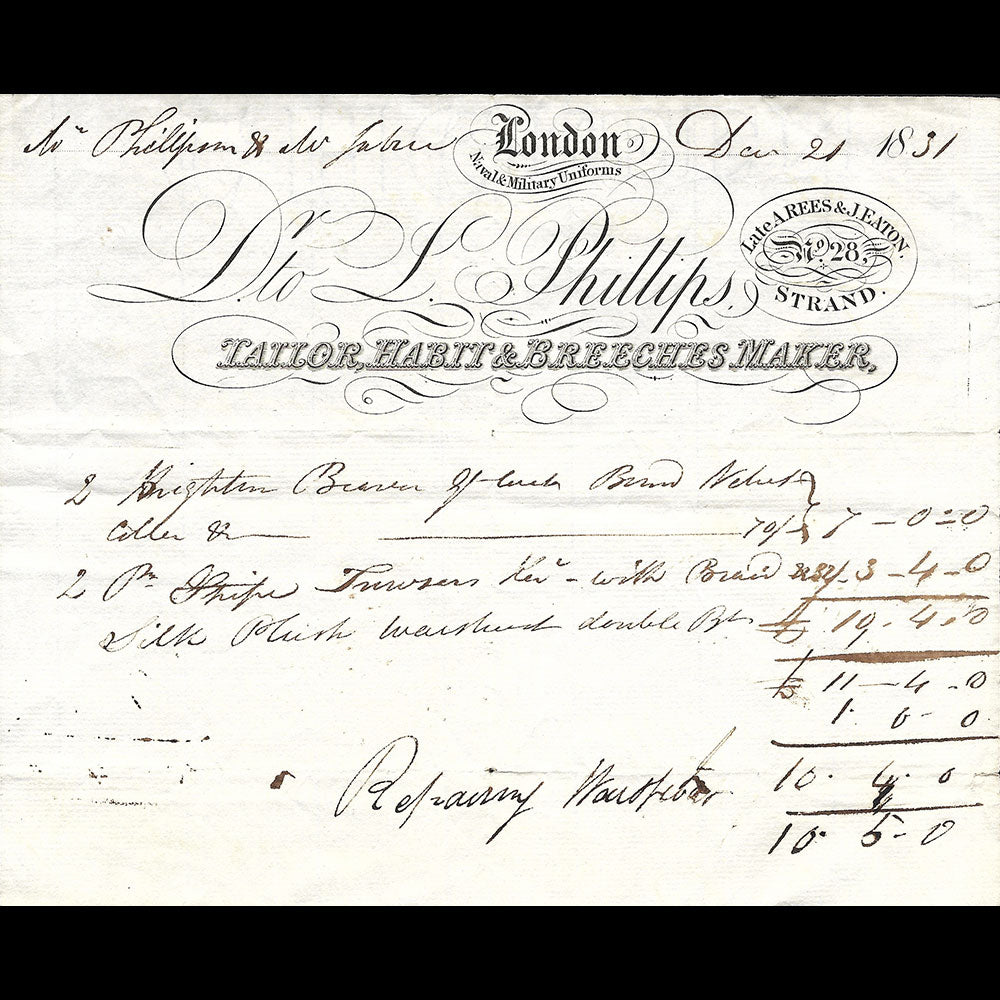 Mr Phillipson & Mr
London
Decr 21 1831
Naval & Military Uniforms
Late A REES & J. EATON.
No. 28,
STRAND.
Dr. to L. Phillips,
TAILOR, HABIT & BREECHES MAKER,
2 Brighton Beaver Velvet
Coller & 70/- 7 - 0 = 0
2 Pr Stripe Trowsers with Braid 32/- 3 - 4 - 0
£ 10. 4. 0
Silk Plush waistcoat double Bt
£ 11 - 4 - 0
1. 0 - 0
10. 4. 0
Repairing Waistcoat
10. 5 - 0